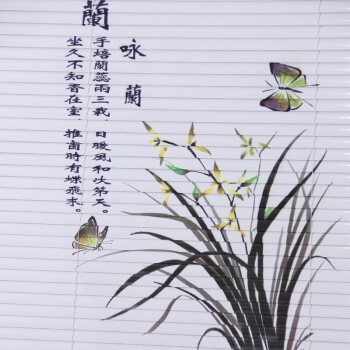 蘭
咏蘭
手培蘭蕊兩三栽，日暖風和次第天。
坐久不知香在室，推窗時有蝶飛來。